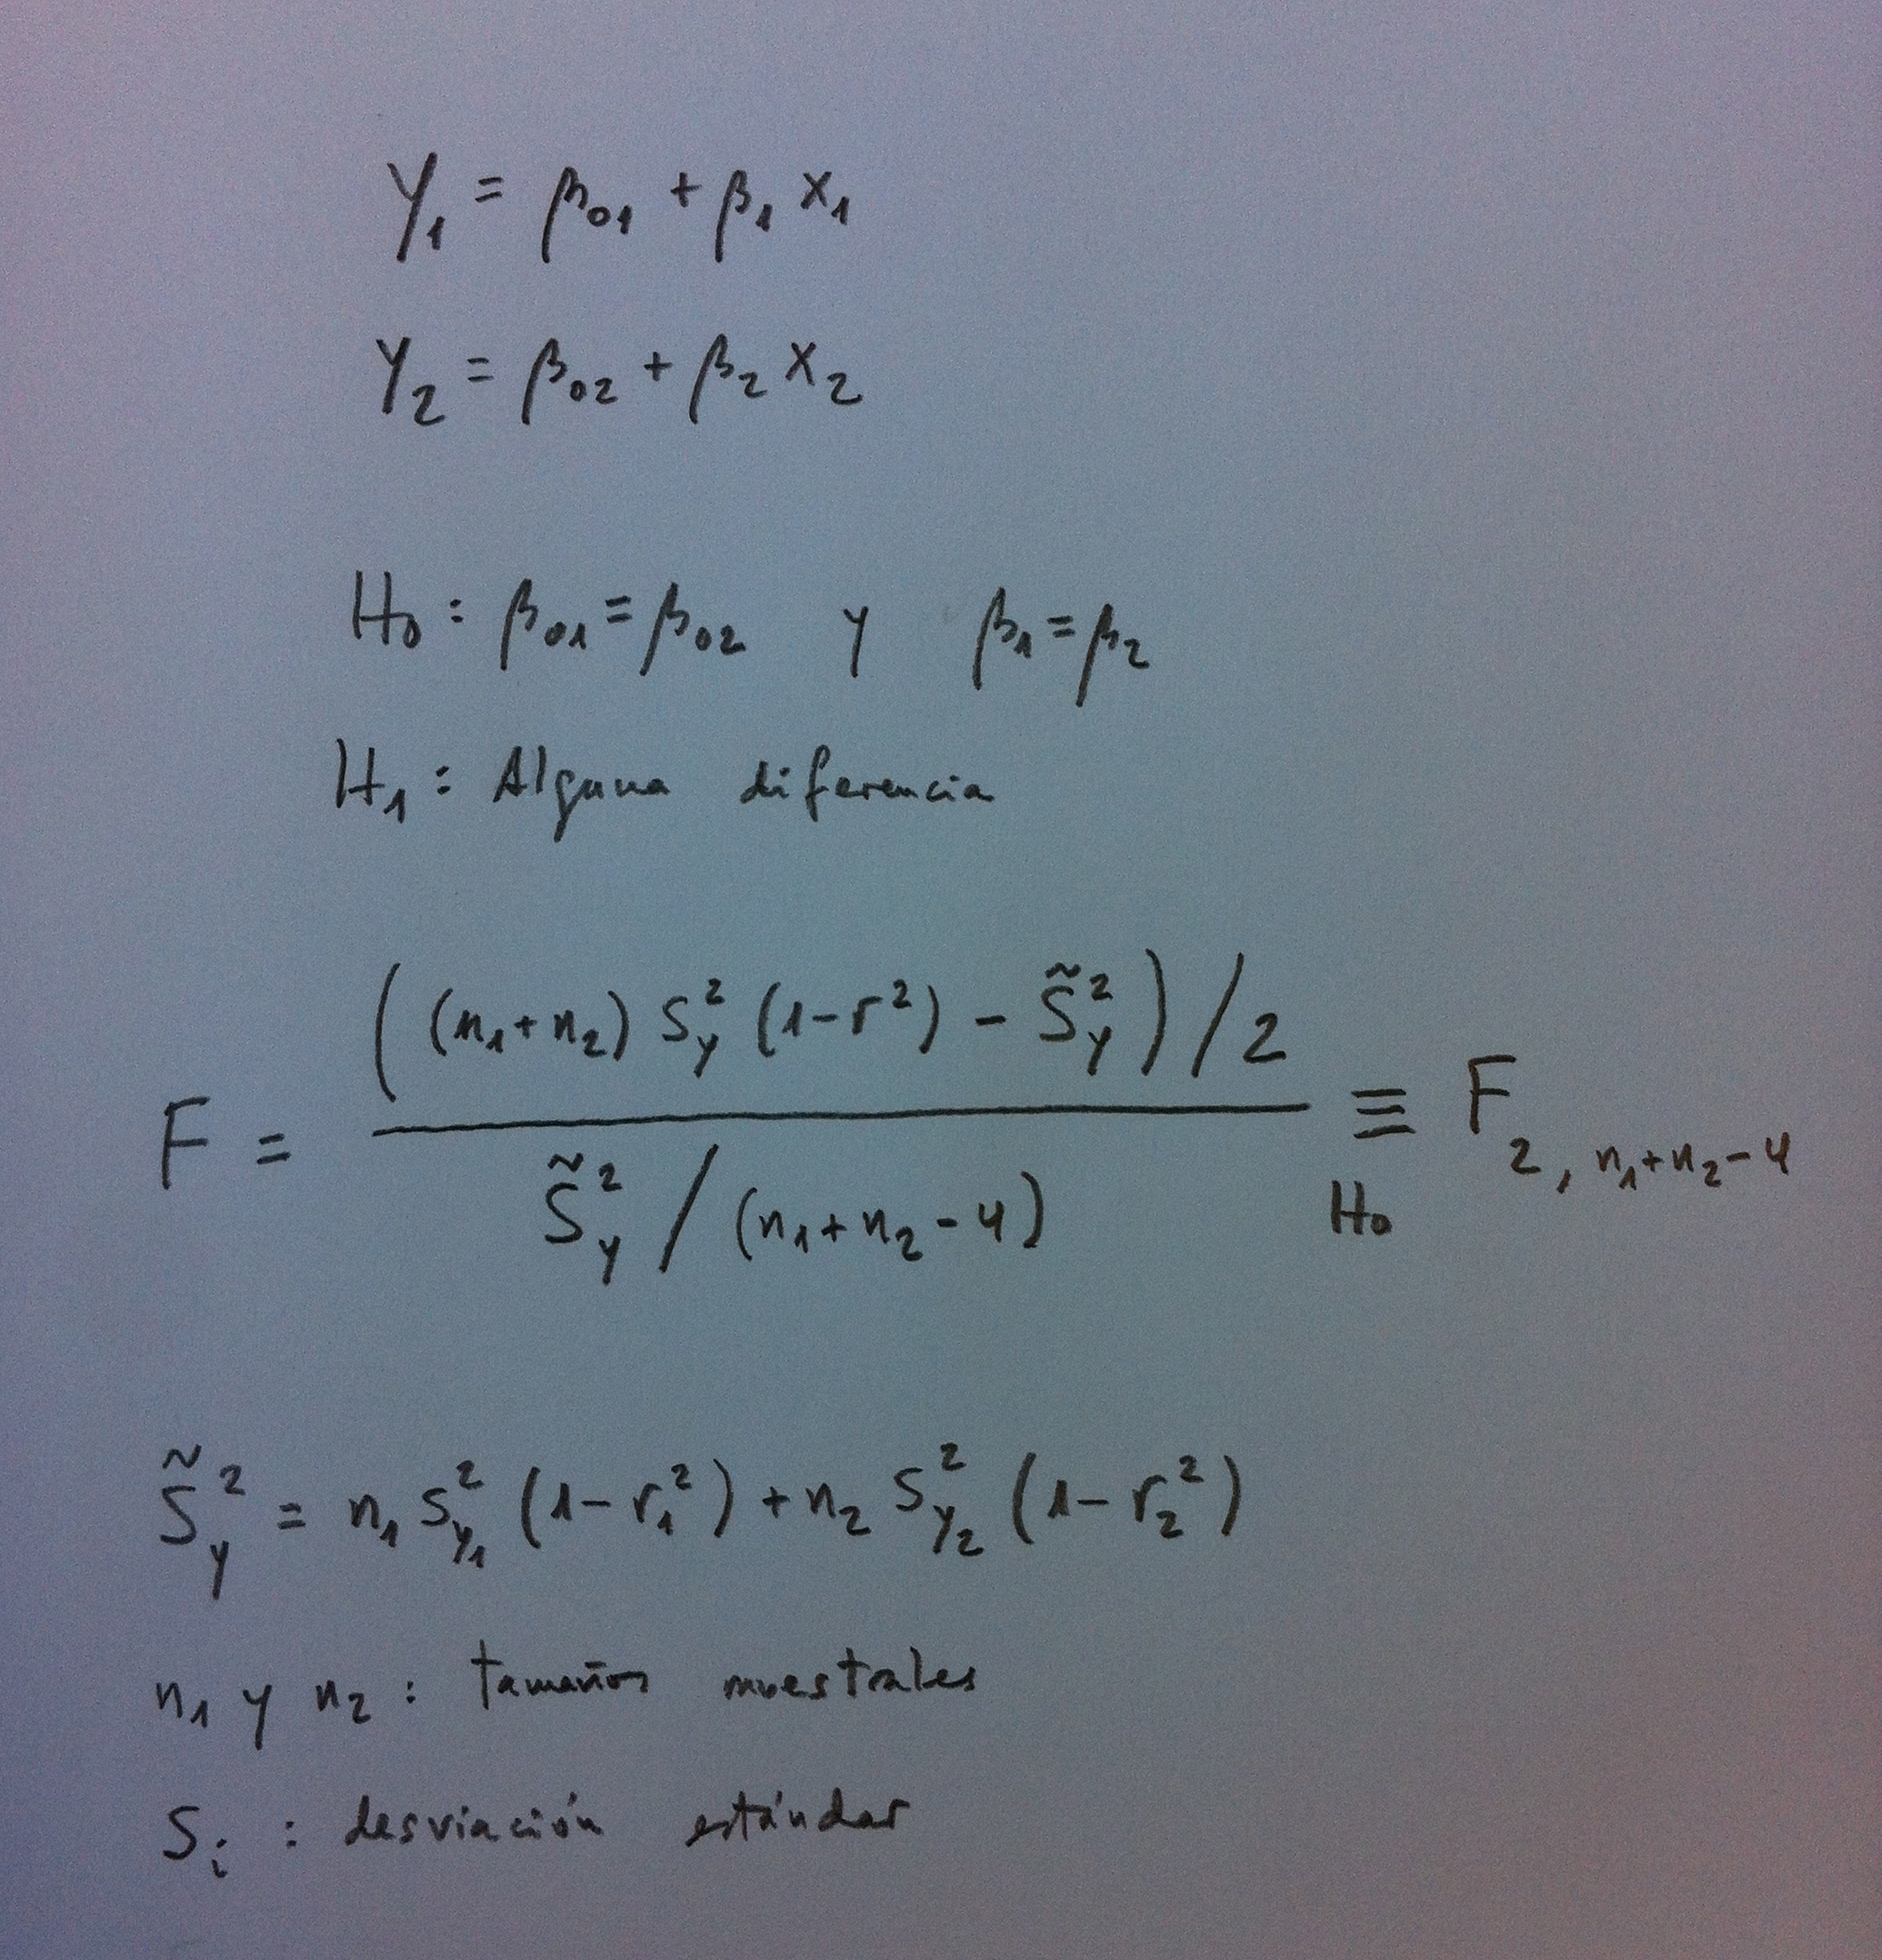 y₁ = β₀₁ + β₁ x₁
y₂ = β₀₂ + β₂ x₂
H₀ : β₀₁ = β₀₂ y β₁ = β₂
H₁ : Alguna diferencia
F = ( (n₁+n₂) S_y² (1-r²) - S̃_y² ) / 2
S̃_y² / (n₁+n₂-4)
≡ F_{2, n₁+n₂-4}
H₀
S̃_y² = n₁ S_{y₁}² (1-r₁²) + n₂ S_{y₂}² (1-r₂²)
n₁ y n₂ : tamaños muestrales
Sᵢ : desviación estándar